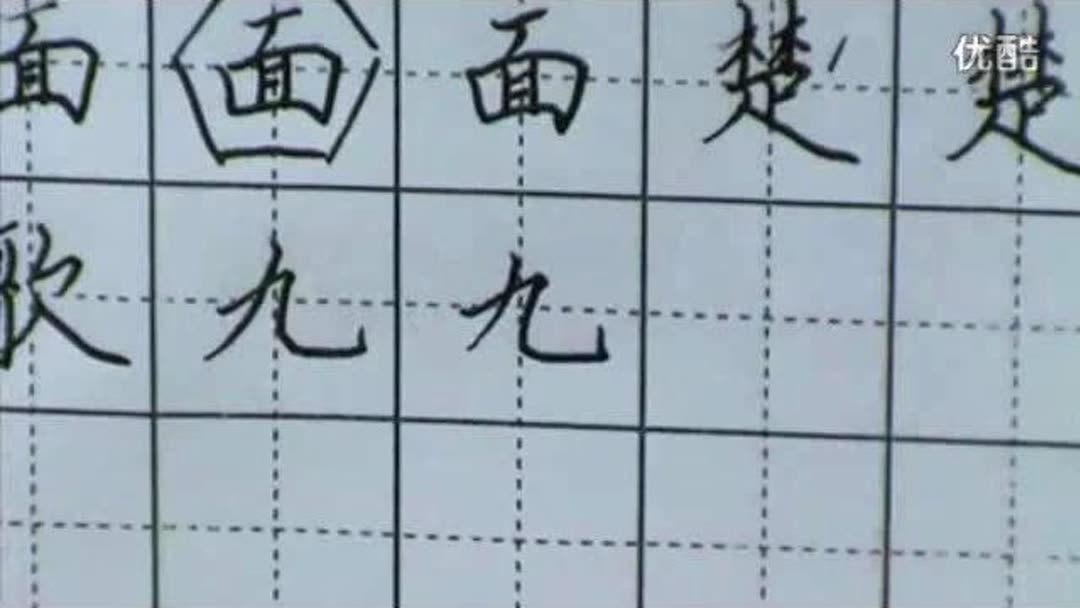 面面面楚楚
歌九九
优酷